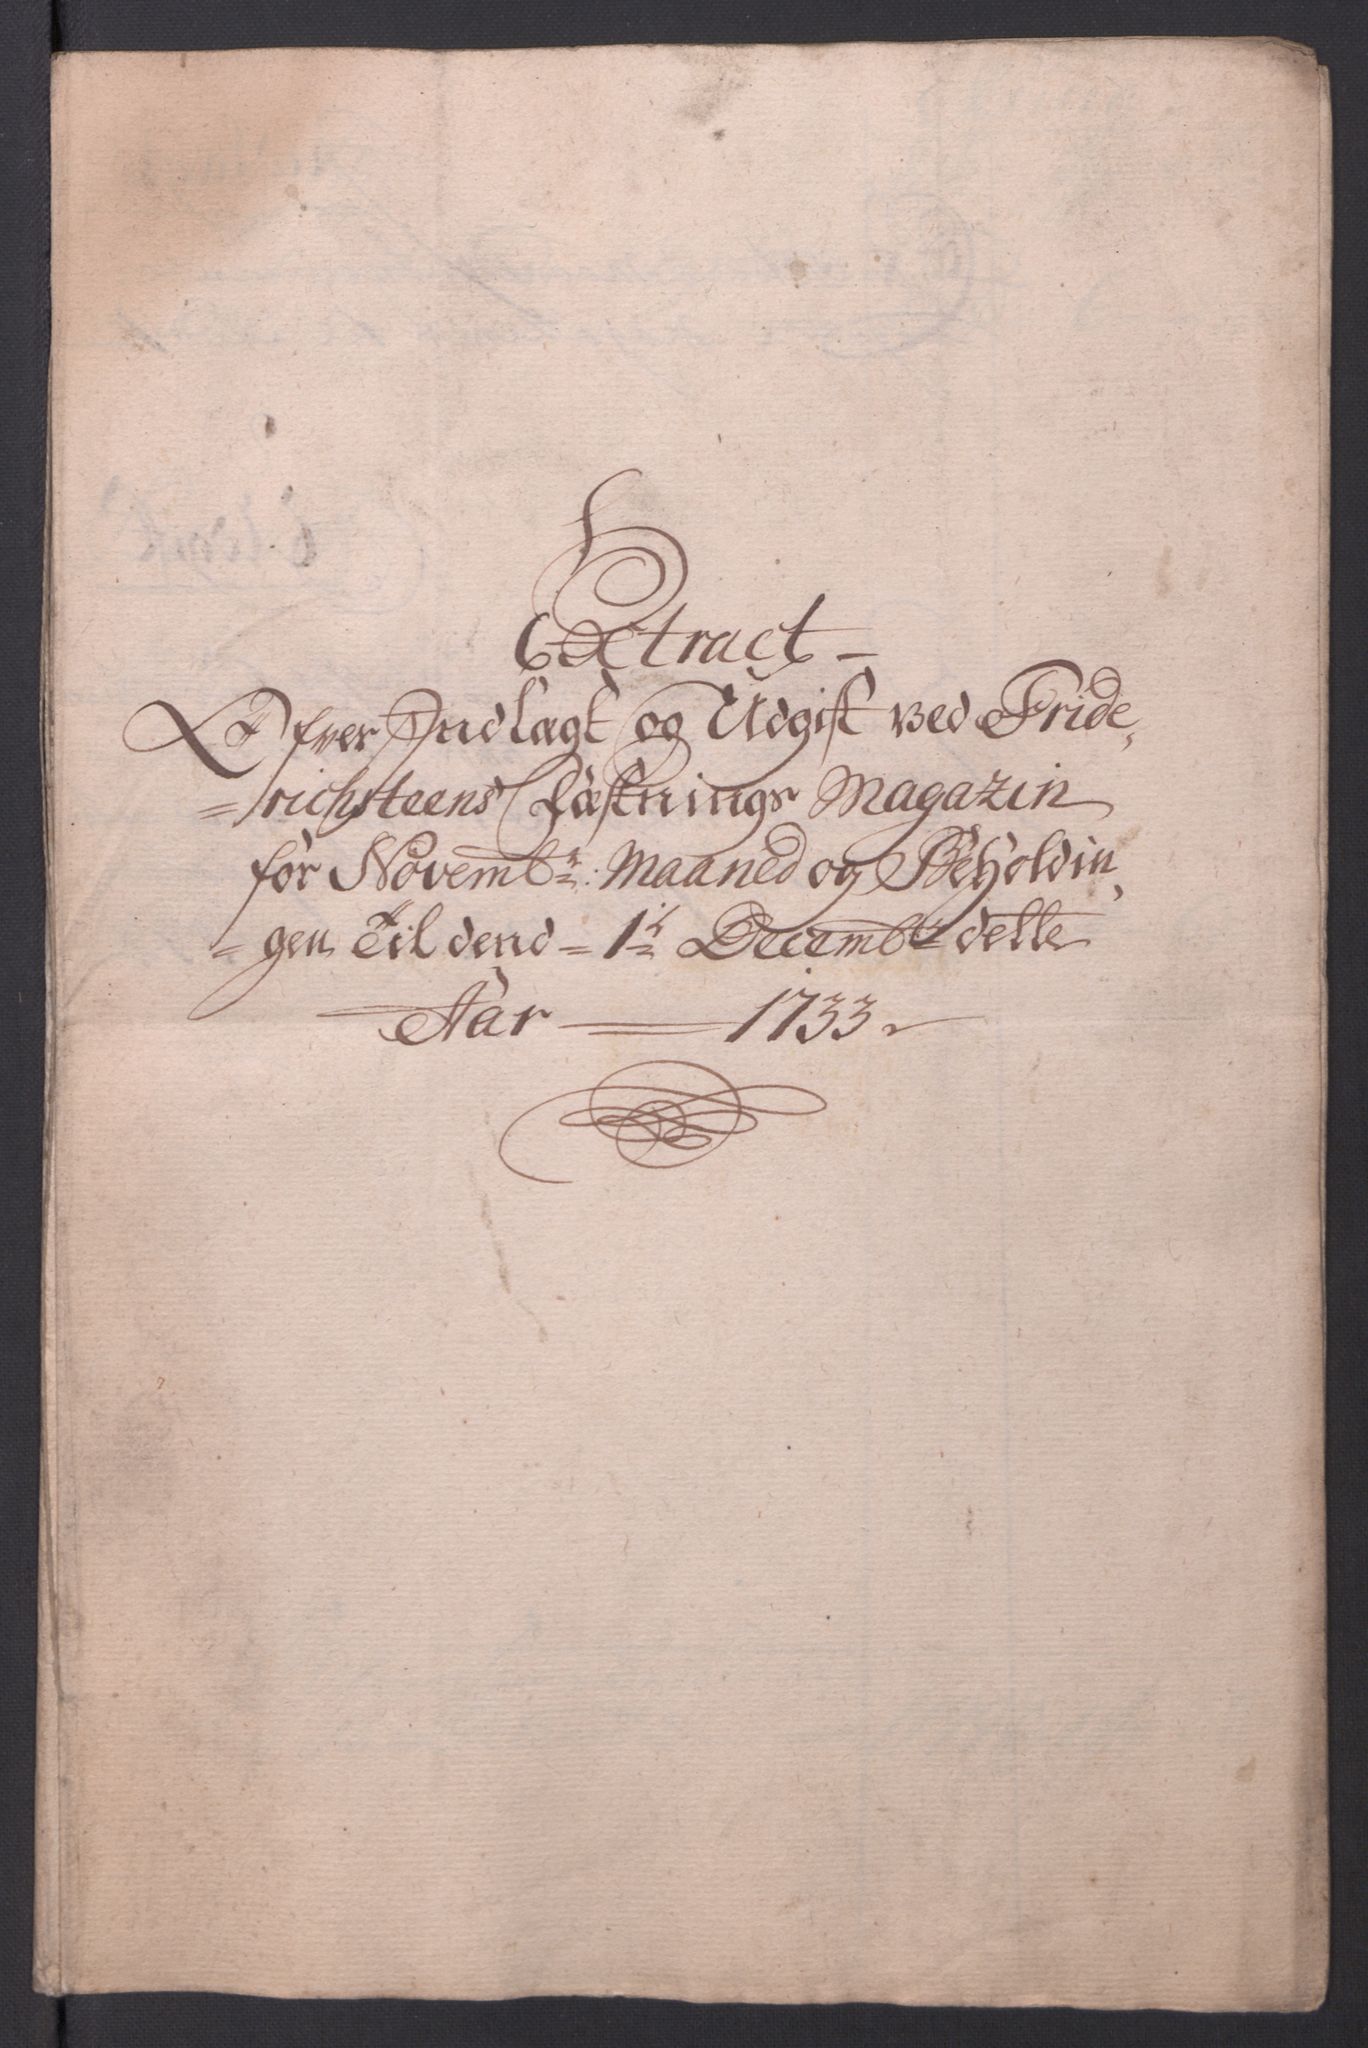 Extract
Ofver Indlagt og Udgift ved Fride,
=richsteens Fæstnings Magazin
for Novembr: Maaned og Beholdin,
=gen Til dend = 1te Decembr dette
Aar 1733.